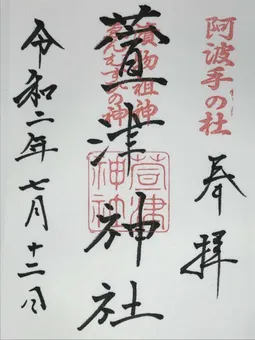 阿波手の杜
奉拝
漬物祖神
萱津神社
萱津
神社
令和二年七月十二日